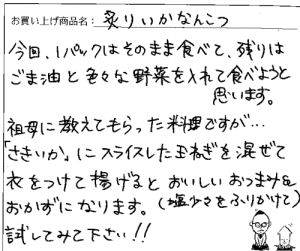 お買い上げ商品名： 炙りいかなんこつ
今回、1パックはそのまま食べて、残りは
ごま油と色々な野菜を入れて食べようと
思います。
祖母に教えてもらった料理ですが…
「さきいか」にスライスした玉ねぎを混ぜて
衣をつけて揚げるとおいしいおつまみ&
おかずになります。(塩少々をふりかけて)
試してみて下さい!!